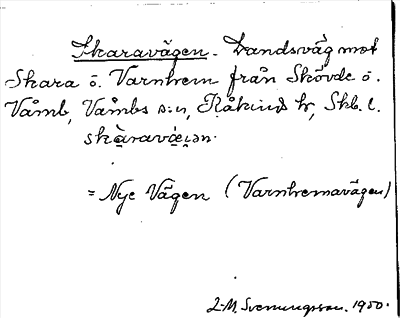 Skaravägen. Landsväg mot
Skara o. Varnhem från Skövde o.
Våmb, Våmbs s:n, Kåkinds hd, Skb. l.
skàravä̀ιən.
= Nye Vägen (Varnhemavägen)
L-M. Svenungsson. 1950.